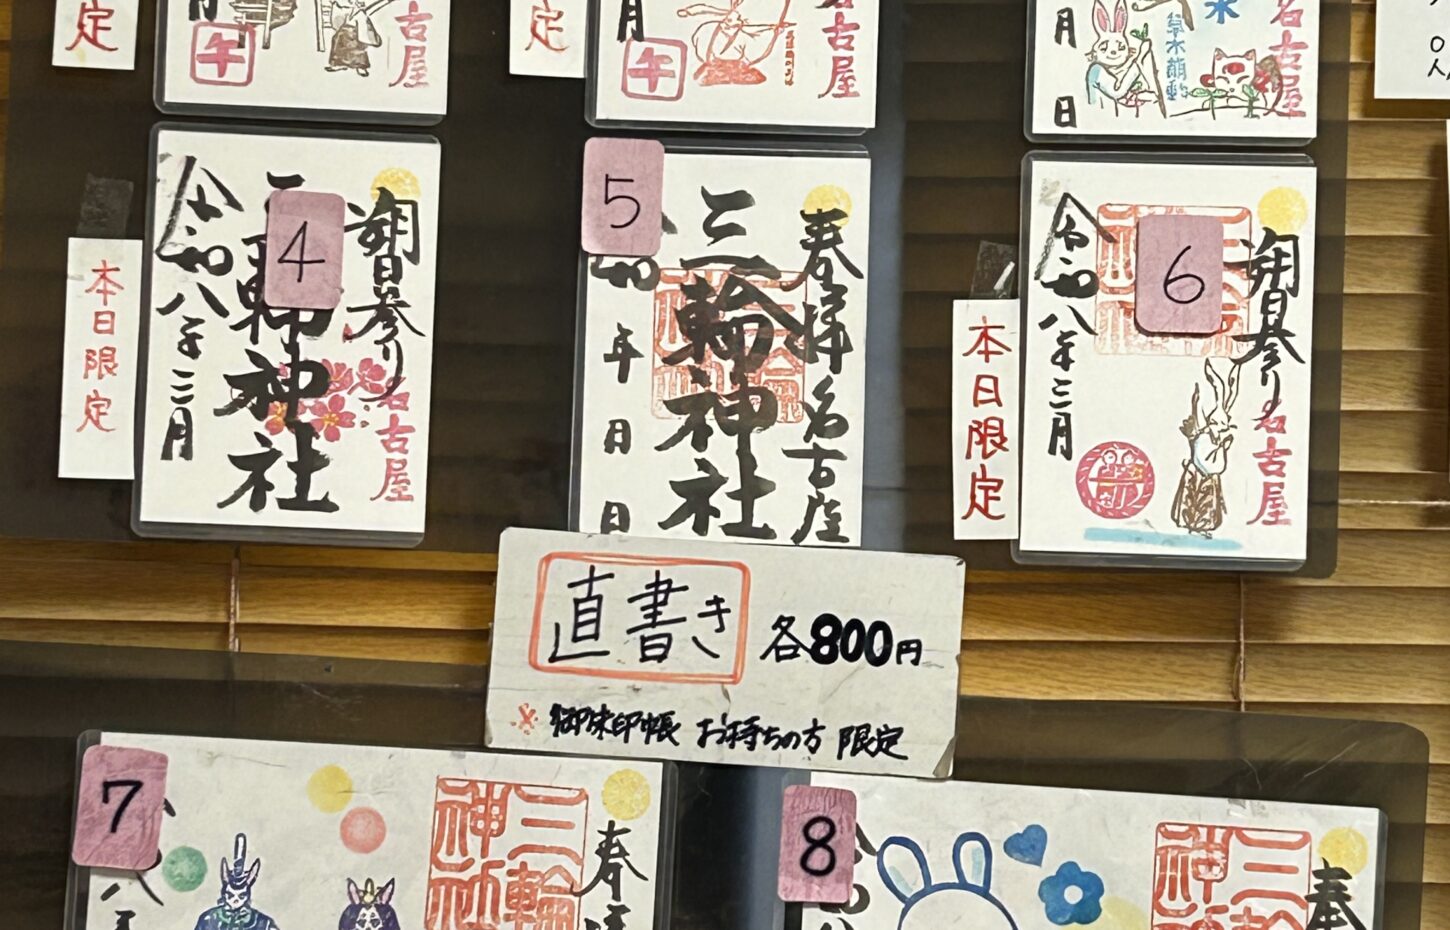 定
月
午
古屋
定
月
午
古屋
月
日
草木萌動
水
名古屋
本日限定
4
朔日参り
三輪神社
令和八年三月
名古屋
5
奉拝 名古屋
三輪神社
和 年 月 日
6
朔日参り
令和八年三月
名古屋
本日限定
直書き 各800円
※御朱印帳 お持ちの方 限定
7
奉
三輪
神社
8
奉
三輪
神社